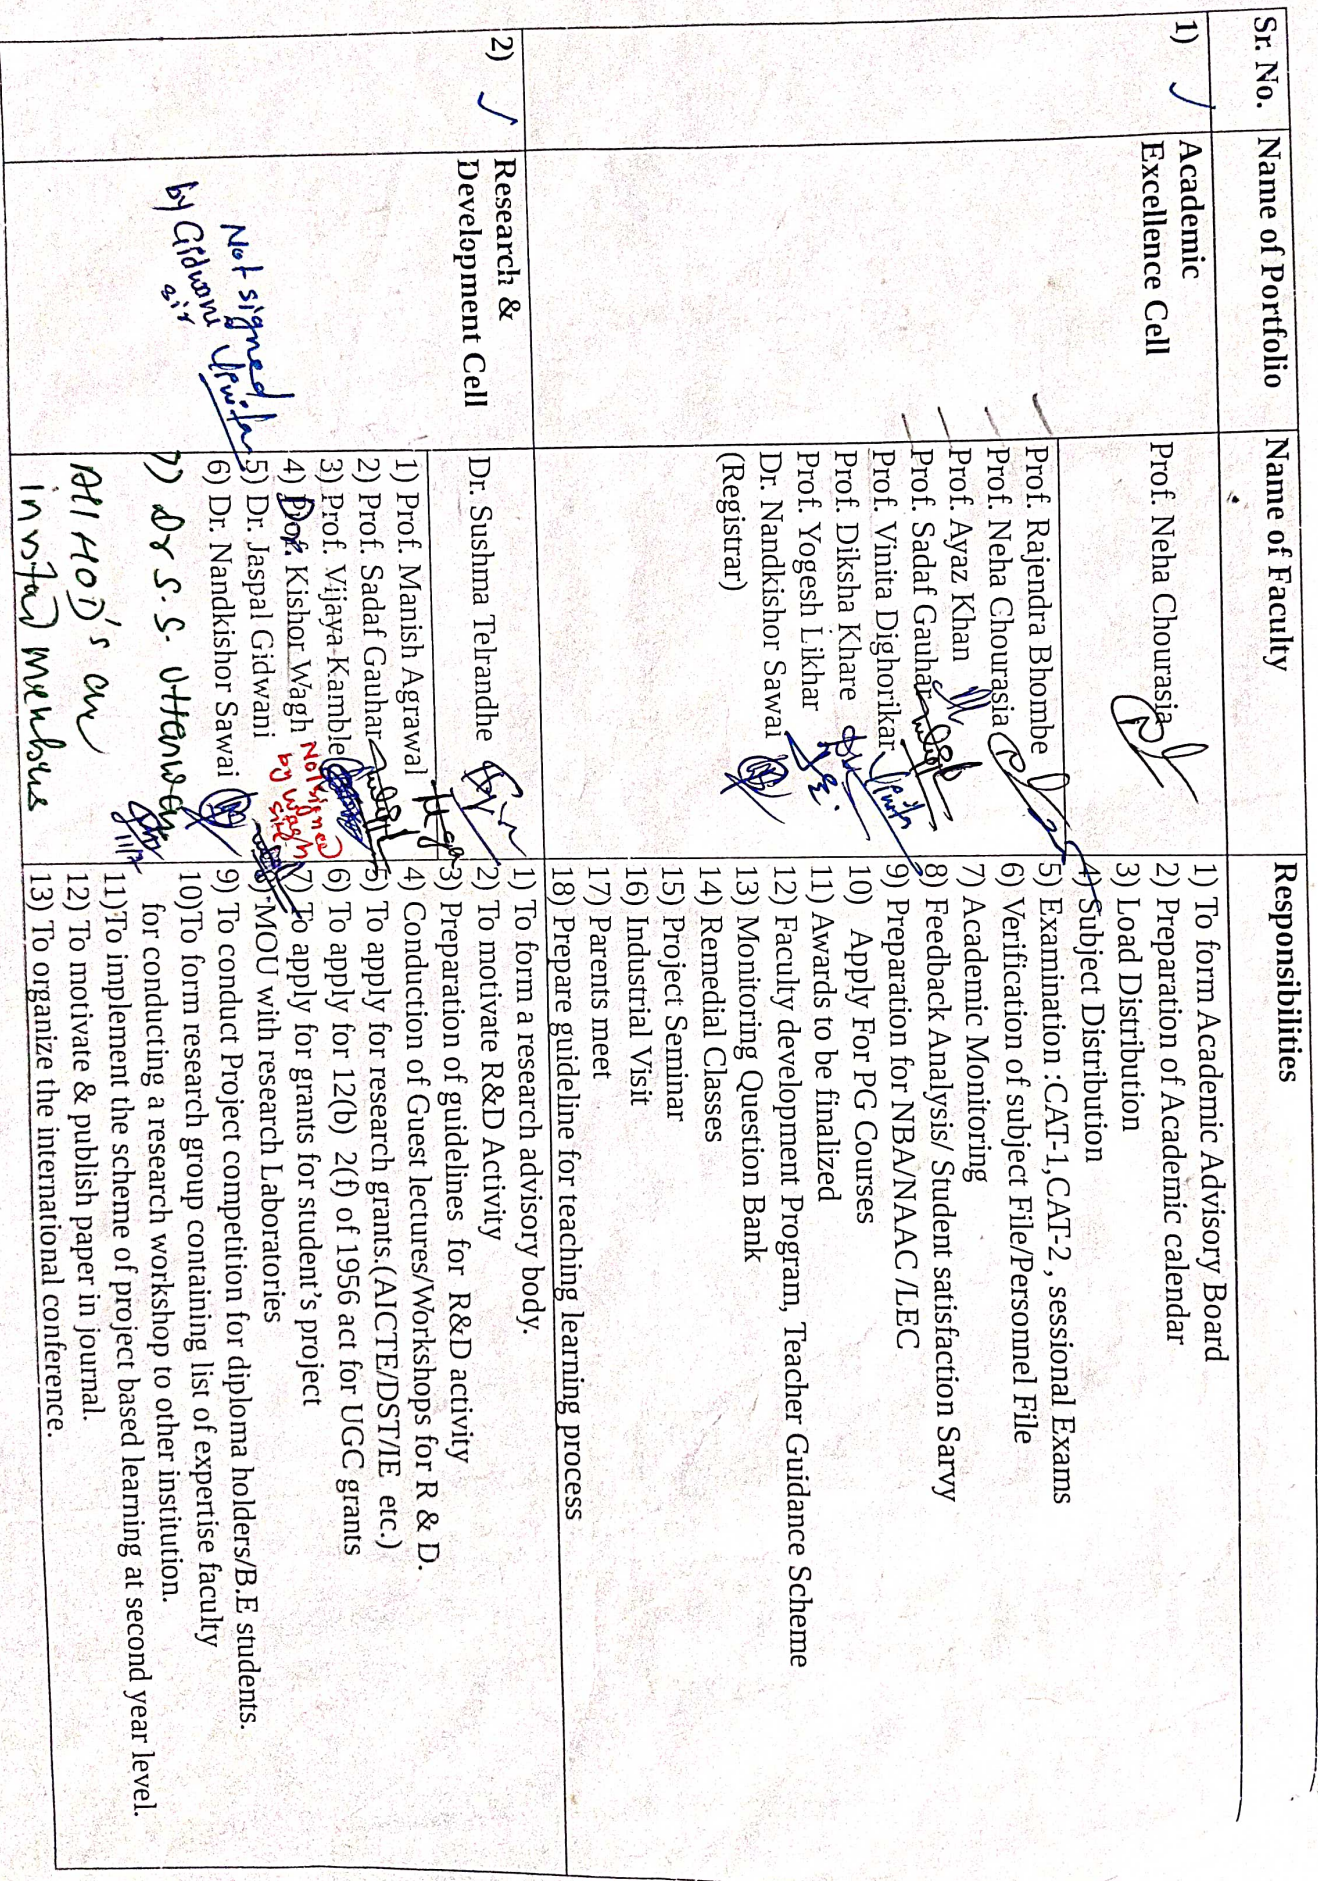 Sr. No.
Name of Portfolio
Name of Faculty
Responsibilities
1)
Academic
Excellence Cell
Prof. Neha Chourasia
Prof. Rajendra Bhombe
Prof. Neha Chourasia
Prof. Ayaz Khan
Prof. Sadaf Gauhar
Prof. Vinita Dighorikar
Prof. Diksha Khare
Prof. Yogesh Likhar
Dr. Nandkishor Sawai
(Registrar)
1) To form Academic Advisory Board
2) Preparation of Academic calendar
3) Load Distribution
4) Subject Distribution
5) Examination :CAT-1,CAT-2 , sessional Exams
6) Verification of subject File/Personnel File
7) Academic Monitoring
8) Feedback Analysis/ Student satisfaction Sarvy
9) Preparation for NBA/NAAC /LEC
10) Apply For PG Courses
11) Awards to be finalized
12) Faculty development Program, Teacher Guidance Scheme
13) Monitoring Question Bank
14) Remedial Classes
15) Project Seminar
16) Industrial Visit
17) Parents meet
18) Prepare guideline for teaching learning process
2)
Research &
Development Cell
Not signed
by Gidwani
sir
Dr. Sushma Telrandhe
1) Prof. Manish Agrawal
2) Prof. Sadaf Gauhar
3) Prof. Vijaya Kamble
4) Dr. Kishor Wagh
Not signed
by Wagh
sir
5) Dr. Jaspal Gidwani
6) Dr. Nandkishor Sawai
7) Dr S. S.
All HOD's are
members
1) To form a research advisory body.
2) To motivate R&D Activity
3) Preparation of guidelines for R&D activity
4) Conduction of Guest lectures/Workshops for R & D.
5) To apply for research grants.(AICTE/DST/IE etc.)
6) To apply for 12(b) 2(f) of 1956 act for UGC grants
7) To apply for grants for student's project
8) MOU with research Laboratories
9) To conduct Project competition for diploma holders/B.E students.
10)To form research group containing list of expertise faculty
for conducting a research workshop to other institution.
11)To implement the scheme of project based learning at second year level.
12) To motivate & publish paper in journal.
13) To organize the international conference.